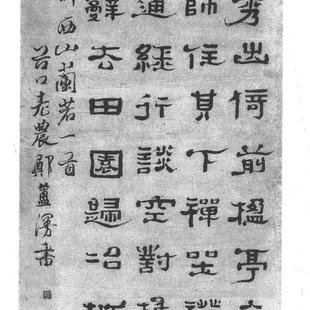 秀出倚前楹亭
師住其下禪坐
通經行談空對
辭去田園歸冶
師西山蘭若一首
谷口老農鄭簠漫書